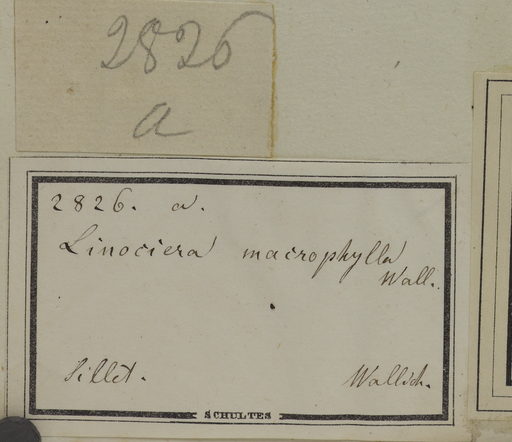 2826
a
2826. a.
Linociera macrophylla
Wall.
Sillet. Wallich.
SCHULTES